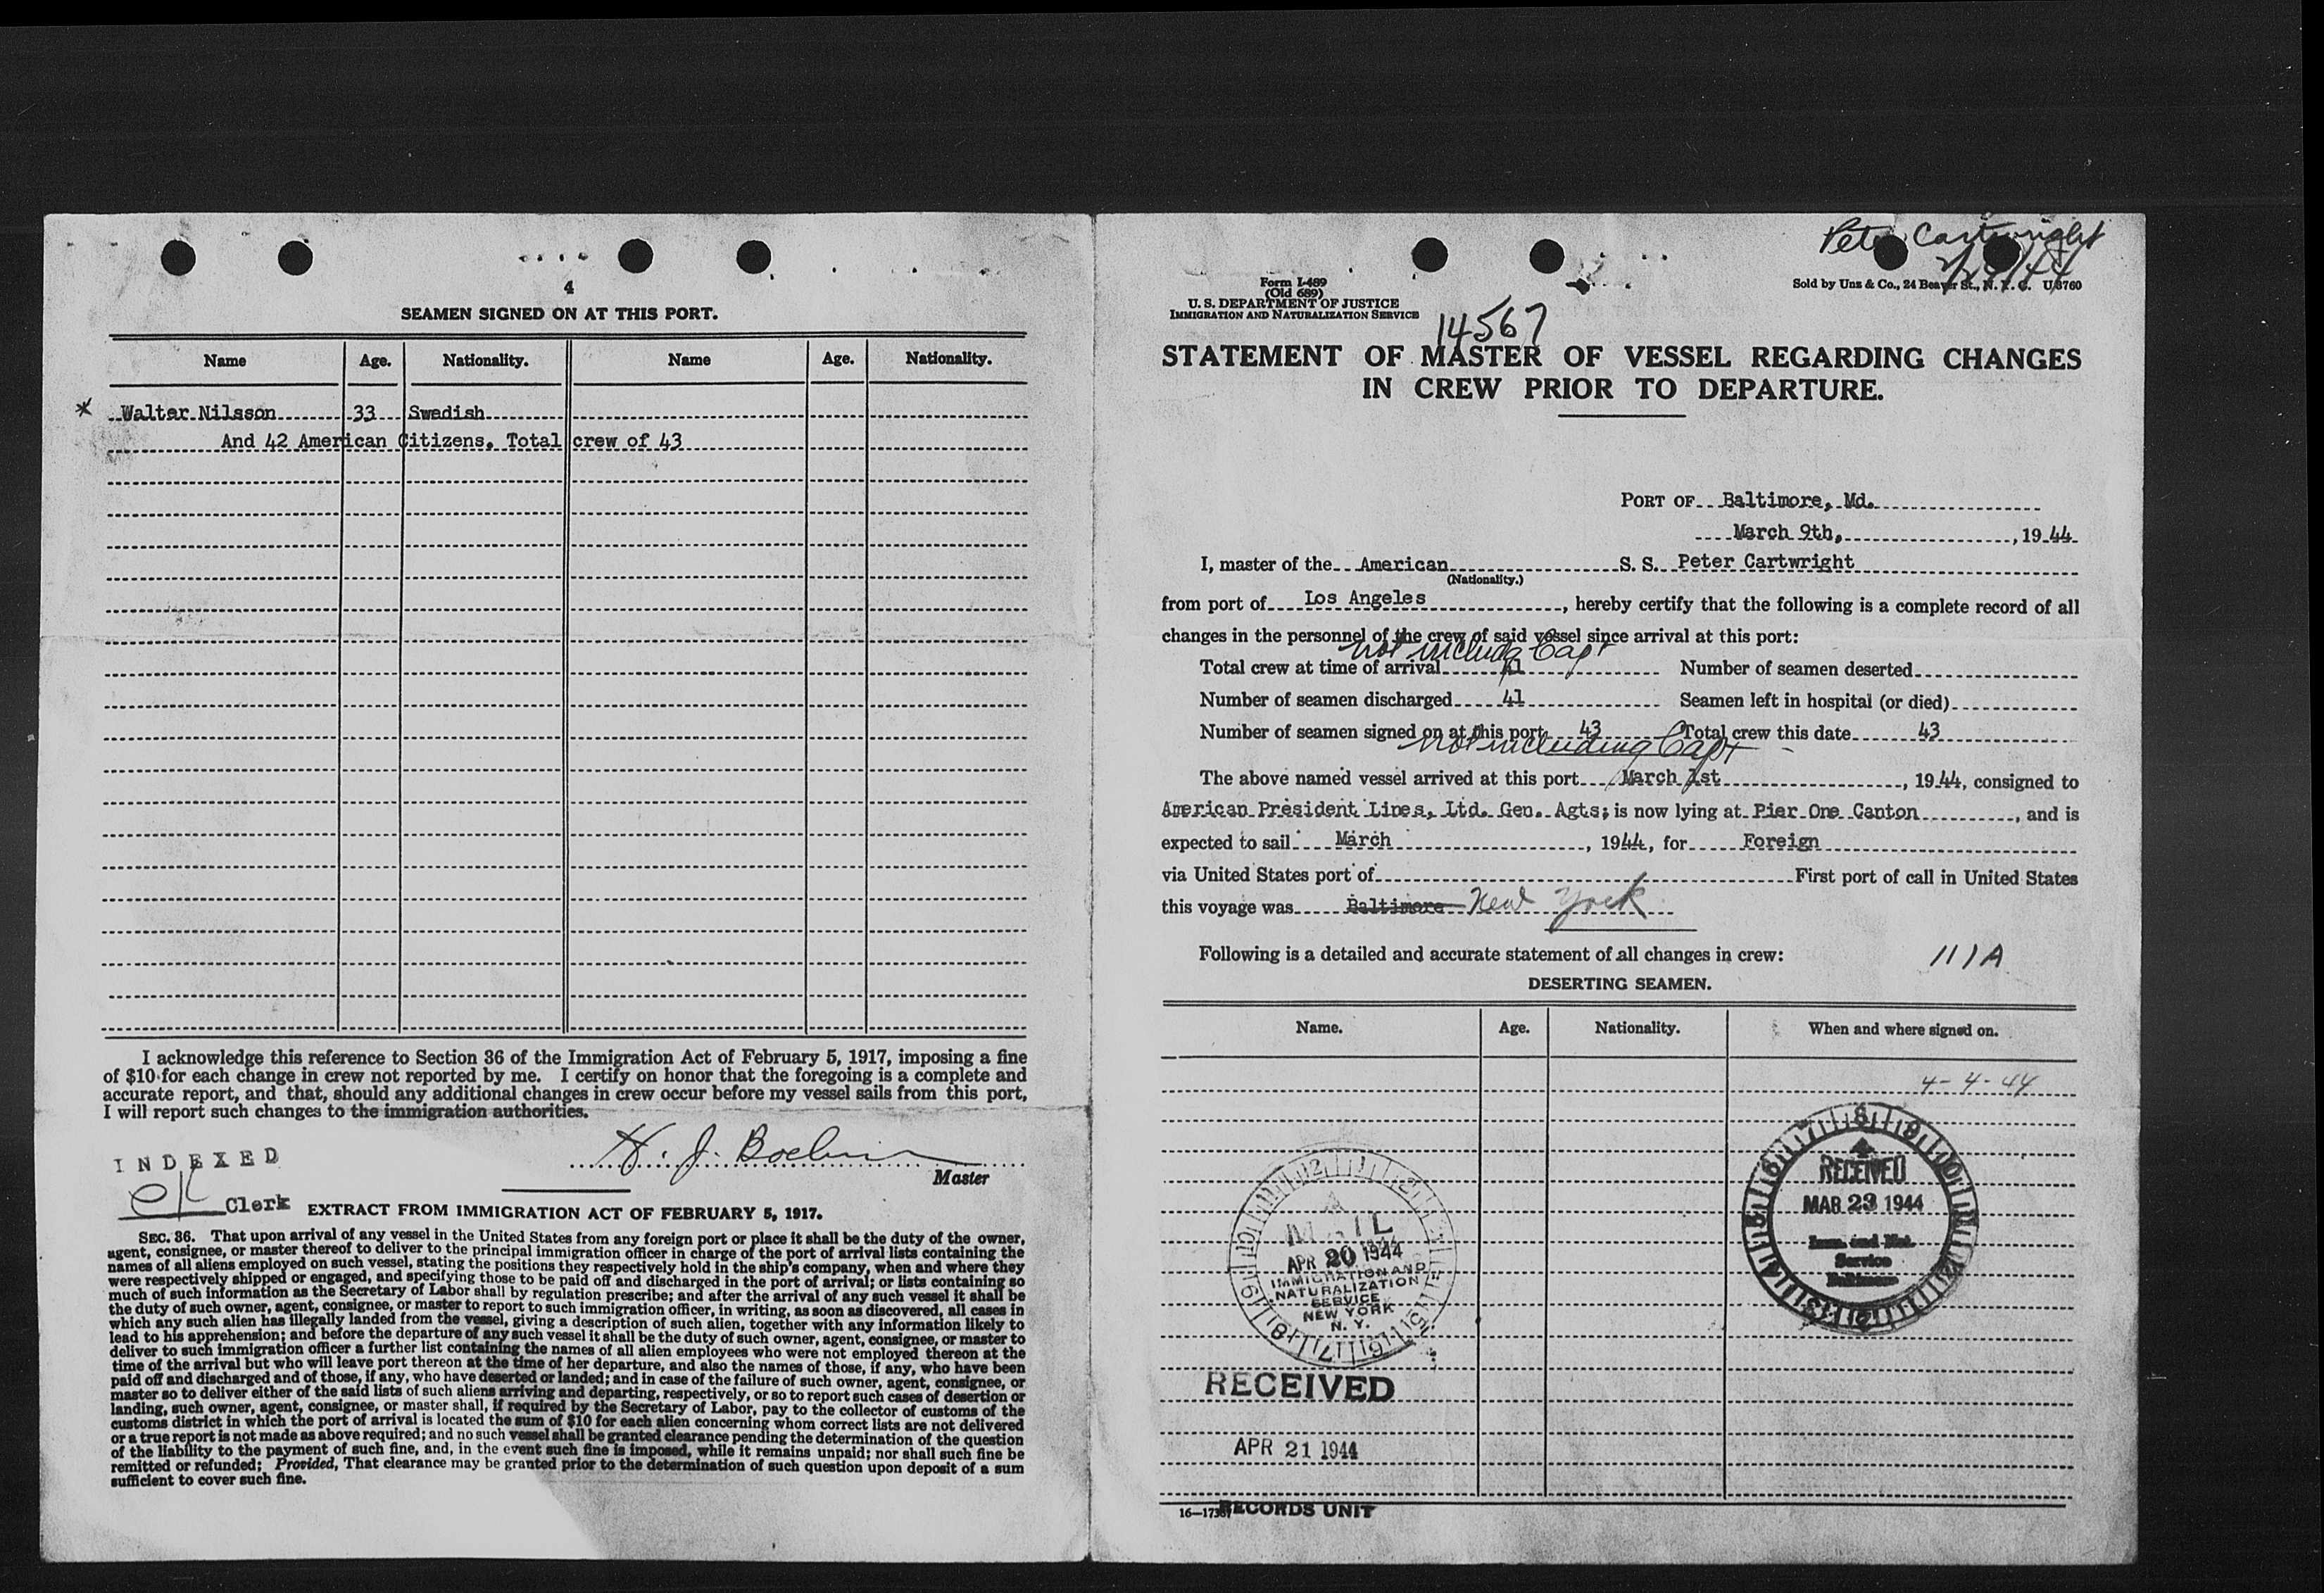 4
SEAMEN SIGNED ON AT THIS PORT.
Name Age. Nationality. Name Age. Nationality.
* Walter Nilsson 33 Swedish
And 42 American Citizens. Total crew of 43
I acknowledge this reference to Section 36 of the Immigration Act of February 5, 1917, imposing a fine
of $10 for each change in crew not reported by me. I certify on honor that the foregoing is a complete and
accurate report, and that, should any additional changes in crew occur before my vessel sails from this port,
I will report such changes to the immigration authorities.
INDEXED
H. J. Boehm
Master
Clerk
EXTRACT FROM IMMIGRATION ACT OF FEBRUARY 5, 1917.
SEC. 36. That upon arrival of any vessel in the United States from any foreign port or place it shall be the duty of the owner,
agent, consignee, or master thereof to deliver to the principal immigration officer in charge of the port of arrival lists containing the
names of all aliens employed on such vessel, stating the positions they respectively hold in the ship's company, when and where they
were respectively shipped or engaged, and specifying those to be paid off and discharged in the port of arrival; or lists containing so
much of such information as the Secretary of Labor shall by regulation prescribe; and after the arrival of any such vessel it shall be
the duty of such owner, agent, consignee, or master to report to such immigration officer, in writing, as soon as discovered, all cases in
which any such alien has illegally landed from the vessel, giving a description of such alien, together with any information likely to
lead to his apprehension; and before the departure of any such vessel it shall be the duty of such owner, agent, consignee, or master to
deliver to such immigration officer a further list containing the names of all alien employees who were not employed thereon at the
time of the arrival but who will leave port thereon at the time of her departure, and also the names of those, if any, who have been
paid off and discharged and of those, if any, who have deserted or landed; and in case of the failure of such owner, agent, consignee, or
master so to deliver either of the said lists of such aliens arriving and departing, respectively, or so to report such cases of desertion or
landing, such owner, agent, consignee, or master shall, if required by the Secretary of Labor, pay to the collector of customs of the
customs district in which the port of arrival is located the sum of $10 for each alien concerning whom correct lists are not delivered
or a true report is not made as above required; and no such vessel shall be granted clearance pending the determination of the question
of the liability to the payment of such fine, and, in the event such fine is imposed, while it remains unpaid; nor shall such fine be
remitted or refunded; Provided, That clearance may be granted prior to the determination of such question upon deposit of a sum
sufficient to cover such fine.
Peter Cartwright
Form I-489
(Old 689)
U. S. DEPARTMENT OF JUSTICE
IMMIGRATION AND NATURALIZATION SERVICE
Sold by Unz & Co., 24 Beaver St., N. Y. C. U 3760
14567
STATEMENT OF MASTER OF VESSEL REGARDING CHANGES
IN CREW PRIOR TO DEPARTURE.
PORT OF Baltimore, Md.
March 9th, , 1944
I, master of the American S. S. Peter Cartwright
(Nationality.)
from port of Los Angeles , hereby certify that the following is a complete record of all
changes in the personnel of the crew of said vessel since arrival at this port:
not includg Capt
Total crew at time of arrival 41 Number of seamen deserted
Number of seamen discharged 41 Seamen left in hospital (or died)
Number of seamen signed on at this port 43 Total crew this date 43
not including Capt
The above named vessel arrived at this port March 1st , 1944, consigned to
American President Lines, Ltd. Gen. Agts; is now lying at Pier One Canton , and is
expected to sail March , 1944, for Foreign
via United States port of First port of call in United States
this voyage was Baltimore New York
Following is a detailed and accurate statement of all changes in crew: 111A
DESERTING SEAMEN.
Name. Age. Nationality. When and where signed on.
4-4-44
RECEIVED
MAR 23 1944
Imm. and Nat.
Service
Baltimore
MAIL
APR 20 1944
IMMIGRATION AND
NATURALIZATION
SERVICE
NEW YORK
N. Y.
RECEIVED
APR 21 1944
RECORDS UNIT